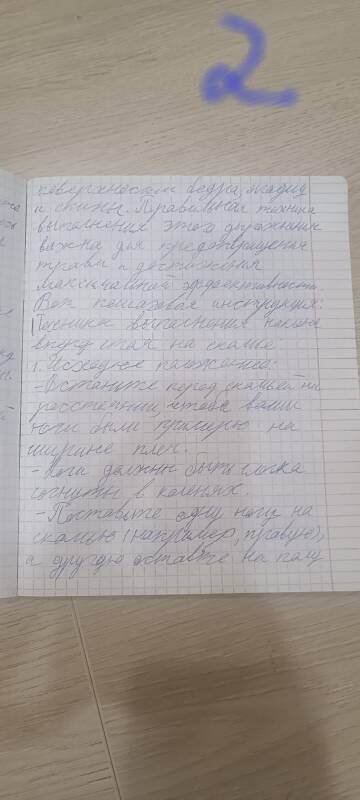 2
поверхности бедра, ягодиц
и спины. Правильная техника
выполнения этого упражнения
важна для предотвращения
травм и достижения
максимальной эффективности.
Вот пошаговая инструкция:
Техника выполнения наклона
вперёд стоя на скамье
1. Исходное положение:
- Встаньте перед скамьей на
расстоянии, чтобы ваши
ноги были примерно на
ширине плеч.
- Ноги должны быть слегка
согнуты в коленях.
- Поставьте одну ногу на
скамью (например, правую),
а другую оставьте на полу